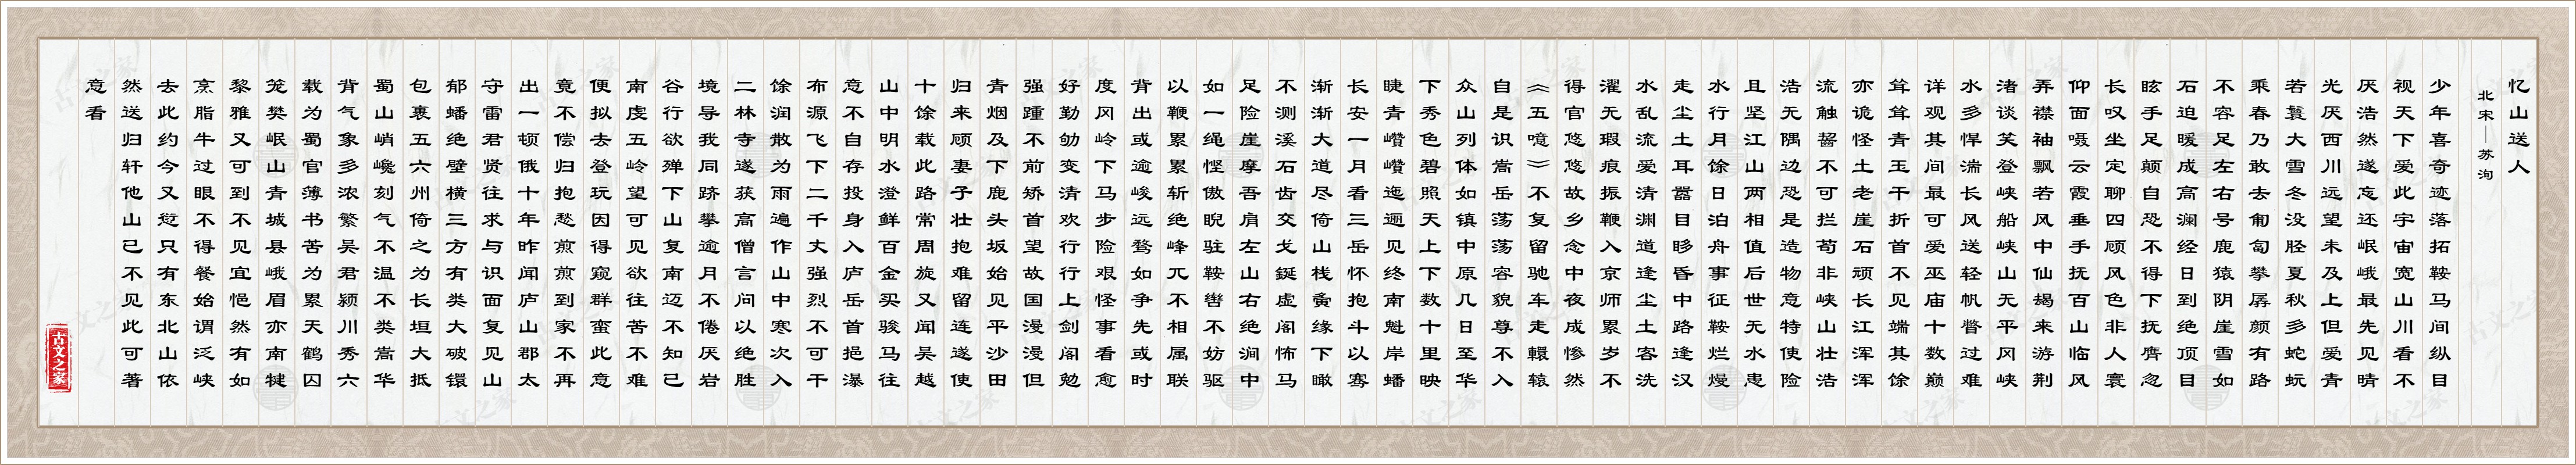 忆山送人
北宋—苏洵
少年喜奇迹落拓鞍马间纵目
视天下爱此宇宙宽山川看不
厌浩然遂忘还岷峨最先见晴
光厌西川远望未及上但爱青
若鬟大雪冬没胫夏秋多蛇蚖
乘春乃敢去匍匐攀孱颜有路
不容足左右号鹿猿阴崖雪如
石迫暖成高澜经日到绝顶目
眩手足颠自恐不得下抚膺忽
长叹坐定聊四顾风色非人寰
仰面嗫云霞垂手抚百山临风
弄襟袖飘若风中仙朅来游荆
渚谈笑登峡船峡山无平冈峡
水多悍湍长风送轻帆瞥过难
详观其间最可爱巫庙十数巅
耸耸青玉干折首不见端其馀
亦诡怪土老崖石顽长江浑浑
流触啮不可拦苟非峡山壮浩
浩无隅边恐是造物意特使险
且坚江山两相值后世无水患
水行月馀日泊舟事征鞍烂熳
走尘土耳嚣目眵昏中路逢汉
水乱流爱清渊道逢尘土客洗
濯无瑕痕振鞭入京师累岁不
得官悠悠故乡念中夜成惨然
《五噫》不复留驰车走轘辕
自是识嵩岳荡荡容貌尊不入
众山列体如镇中原几日至华
下秀色碧照天上下数十里映
睫青巑巑迤逦见终南魁岸蟠
长安一月看三岳怀抱斗以骞
渐渐大道尽倚山栈夤缘下瞰
不测溪石齿交戈鋋虚阁怖马
足险崖摩吾肩左山右绝涧中
如一绳悭傲睨驻鞍辔不妨驱
以鞭累累斩绝峰兀不相属联
背出或逾峻远骛如争先或时
度风岭下马步险艰怪事看愈
好勤劬变清欢行行上剑阁勉
强踵不前矫首望故国漫漫但
青烟及下鹿头坂始见平沙田
归来顾妻子壮抱难留连遂使
十馀载此路常周旋又闻吴越
山中明水澄鲜百金买骏马往
意不自存投身入庐岳首挹瀑
布源飞下二千丈强烈不可干
馀润散为雨遍作山中寒次入
二林寺遂获高僧言问以绝胜
境导我同跻攀逾月不倦厌岩
谷行欲殚下山复南迈不知已
南虔五岭望可见欲往苦不难
便拟去登玩因得窥群蛮此意
竟不偿归抱愁煎煎到家不再
出一顿俄十年昨闻庐山郡太
守雷君贤往求与识面复见山
郁蟠绝壁横三方有类大破镮
包裹五六州倚之为长垣大抵
蜀山峭巉刻气不温不类嵩华
背气象多浓繁吴君颍川秀六
载为蜀官薄书苦为累天鹤囚
笼樊岷山青城县峨眉亦南犍
黎雅又可到不见宜悒然有如
烹脂牛过眼不得餐始谓泛峡
去此约今又愆只有东北山依
然送归轩他山已不见此可著
意看
古文之家